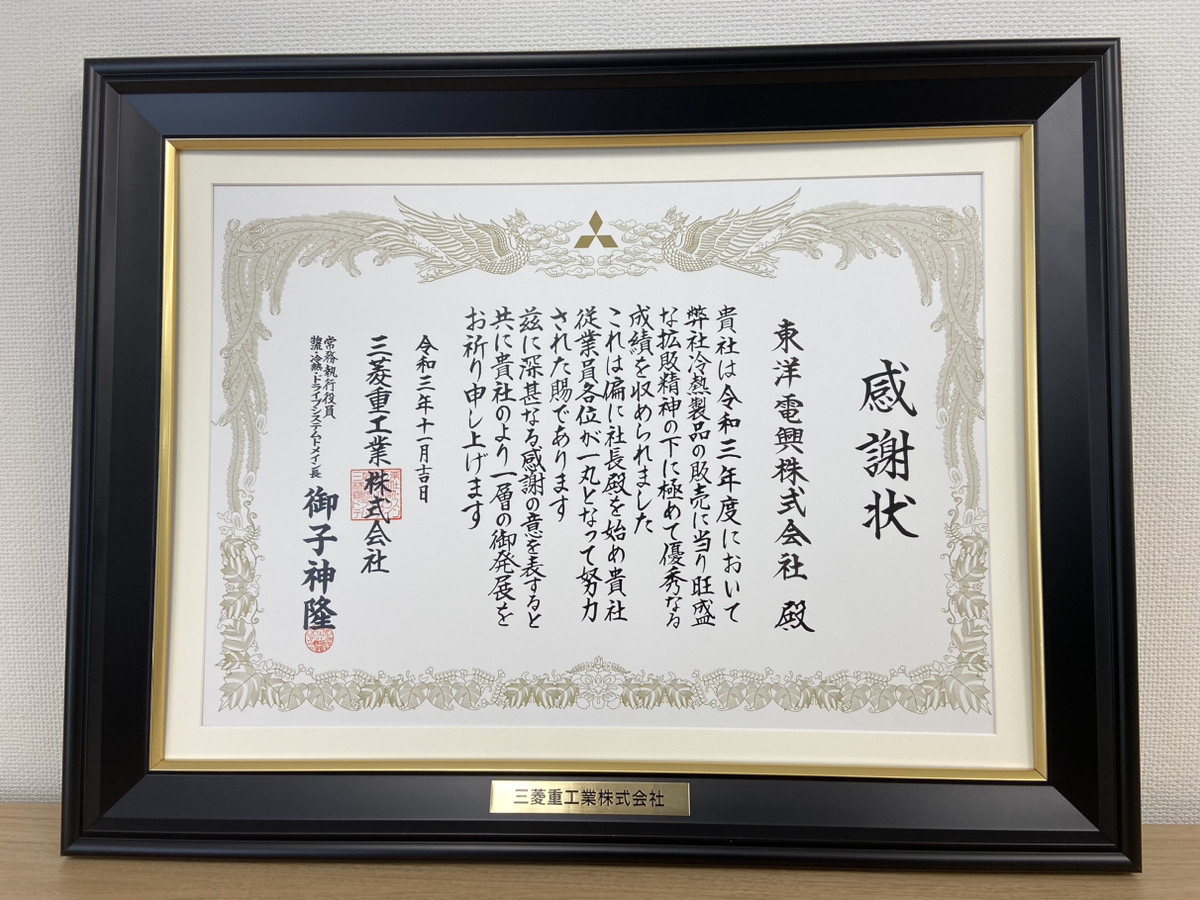 感謝状
東洋電興株式会社 殿
貴社は令和三年度において
弊社冷熱製品の販売に当り旺盛
な拡販精神の下に極めて優秀なる
成績を収められました
これは偏に社長殿を始め貴社
従業員各位が一丸となって努力
された賜であります
玆に深甚なる感謝の意を表すると
共に貴社のより一層の御発展を
お祈り申し上げます
令和三年十一月吉日
三菱重工業株式会社
常務執行役員
物流・冷熱・ドライブシステムドメイン長
御子神隆
三菱重工業株式会社